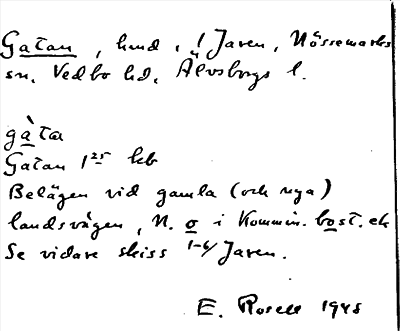 Gatan, hmd. i Jaren, Nössemarks
sn. Vedbo hd. Älvsborgs l.
gàta
Gatan 1 25 kb
Belägen vid gamla (och nya)
landsvägen, N. o i Kommin. bost. ek
Se vidare skiss 1-6/ Jaren.
E. Rosell 1945